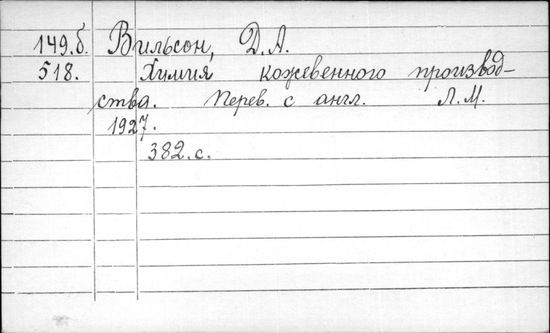 149.б. Вильсон, Д.А.
518. Химия кожевенного производ-
ства. Перев. с англ. Л.М.
1927.
382.с.